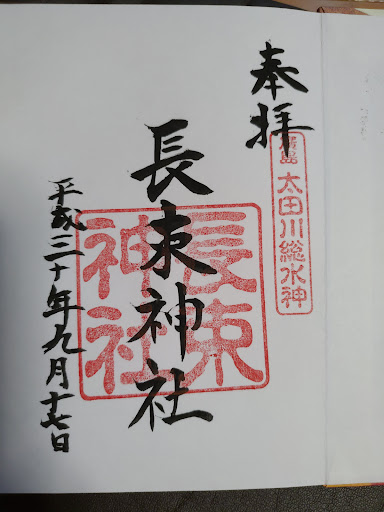 奉拝
廣島 太田川総水神
長束神社
長束神社
平成三十年九月十七日